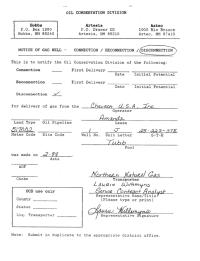 OIL CONSERVATION DIVISION
Hobbs Artesia Aztec
P.O. Box 1980 P.O. Drawer DD 1000 Rio Brazos
Hobbs, NM 88240 Artesia, NM 88210 Aztec, NM 87410
NOTICE OF GAS WELL - CONNECTION / RECONNECTION / DISCONNECTION
This is to notify the Oil Conservation Division of the following:
Connection First Delivery
Date Initial Potential
Reconnection First Delivery
Date Initial Potential
Disconnection
for delivery of gas from the Chevron U.S.A. Inc
Operator
Amanda
Land Type Oil Pipeline Lease
1 J 25-22S-37E
Meter Code Site Code Well No. Unit Letter S-T-R
Tubb
Pool
was made on
date
AOF
Choke
Northern Natural Gas
Transporter
OCD use only
Representative Name/Title
(Please type or print)
County
Land Type
Liq. Transporter
Representative Signature
Note: Submit in duplicate to the appropriate district office.